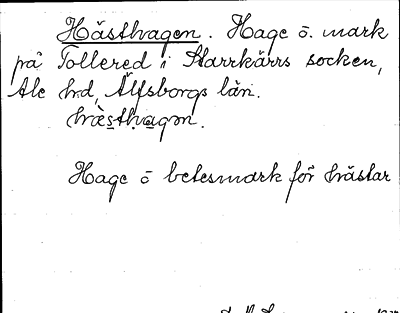 Hästhagen. Hage o. mark
på Tollered i Starrkärrs socken,
Ale hrd, Älfsborgs län.
hæsthagɘn.
Hage o betesmark för hästar